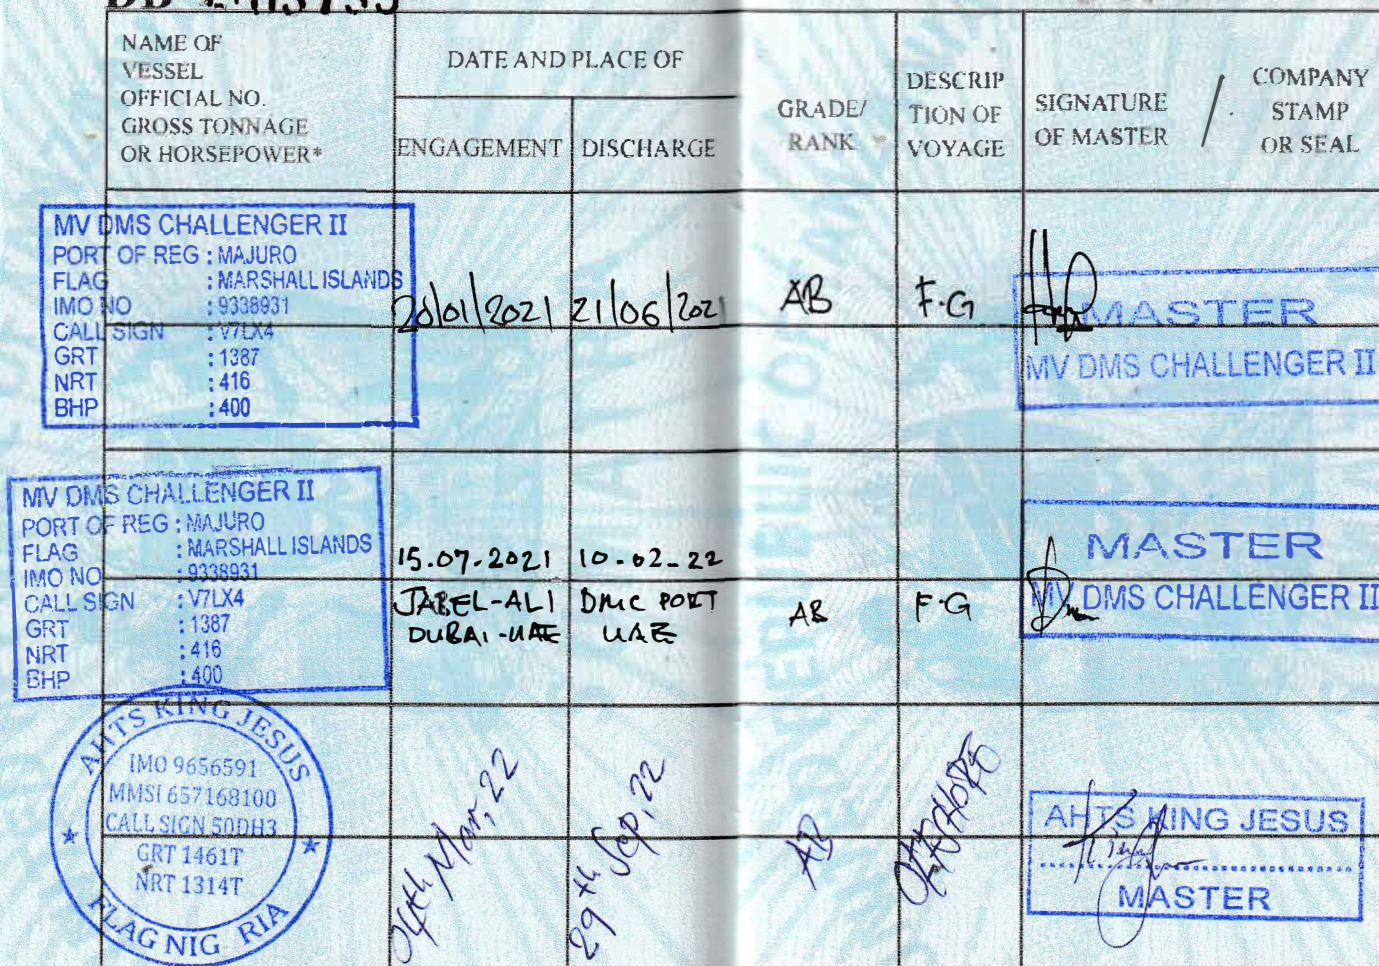 NAME OF
VESSEL
OFFICIAL NO.
GROSS TONNAGE
OR HORSEPOWER*
DATE AND PLACE OF
ENGAGEMENT
DISCHARGE
GRADE/
RANK
DESCRIP
TION OF
VOYAGE
SIGNATURE
OF MASTER
/
COMPANY
STAMP
OR SEAL
MV DMS CHALLENGER II
PORT OF REG : MAJURO
FLAG : MARSHALL ISLANDS
IMO NO : 9338931
CALL SIGN : V7LX4
GRT : 1387
NRT : 416
BHP : 400
20/01/2021
21/06/2021
AB
F.G
MASTER
MV DMS CHALLENGER II
MV DMS CHALLENGER II
PORT OF REG : MAJURO
FLAG : MARSHALL ISLANDS
IMO NO : 9338931
CALL SIGN : V7LX4
GRT : 1387
NRT : 416
BHP : 400
15.07.2021
JABEL-ALI
DUBAI-UAE
10-02-22
DMC PORT
UAE
AB
F.G
MASTER
MV DMS CHALLENGER II
AHTS KING JESUS
IMO 9656591
MMSI 657168100
CALL SIGN 5ODH3
GRT 1461T
NRT 1314T
FLAG NIG RIA
04th Mar, 22
29th Sep, 22
AB
AHTS KING JESUS
MASTER